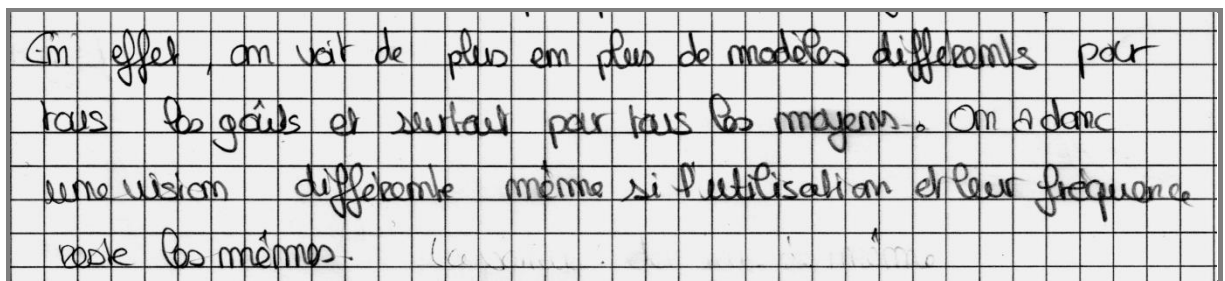 En effet, on voit de plus en plus de modèles différents pour
tous les goûts et surtout pour tous les moyens. On a donc
une vision différente même si l'utilisation et leur fréquence
reste les mêmes.